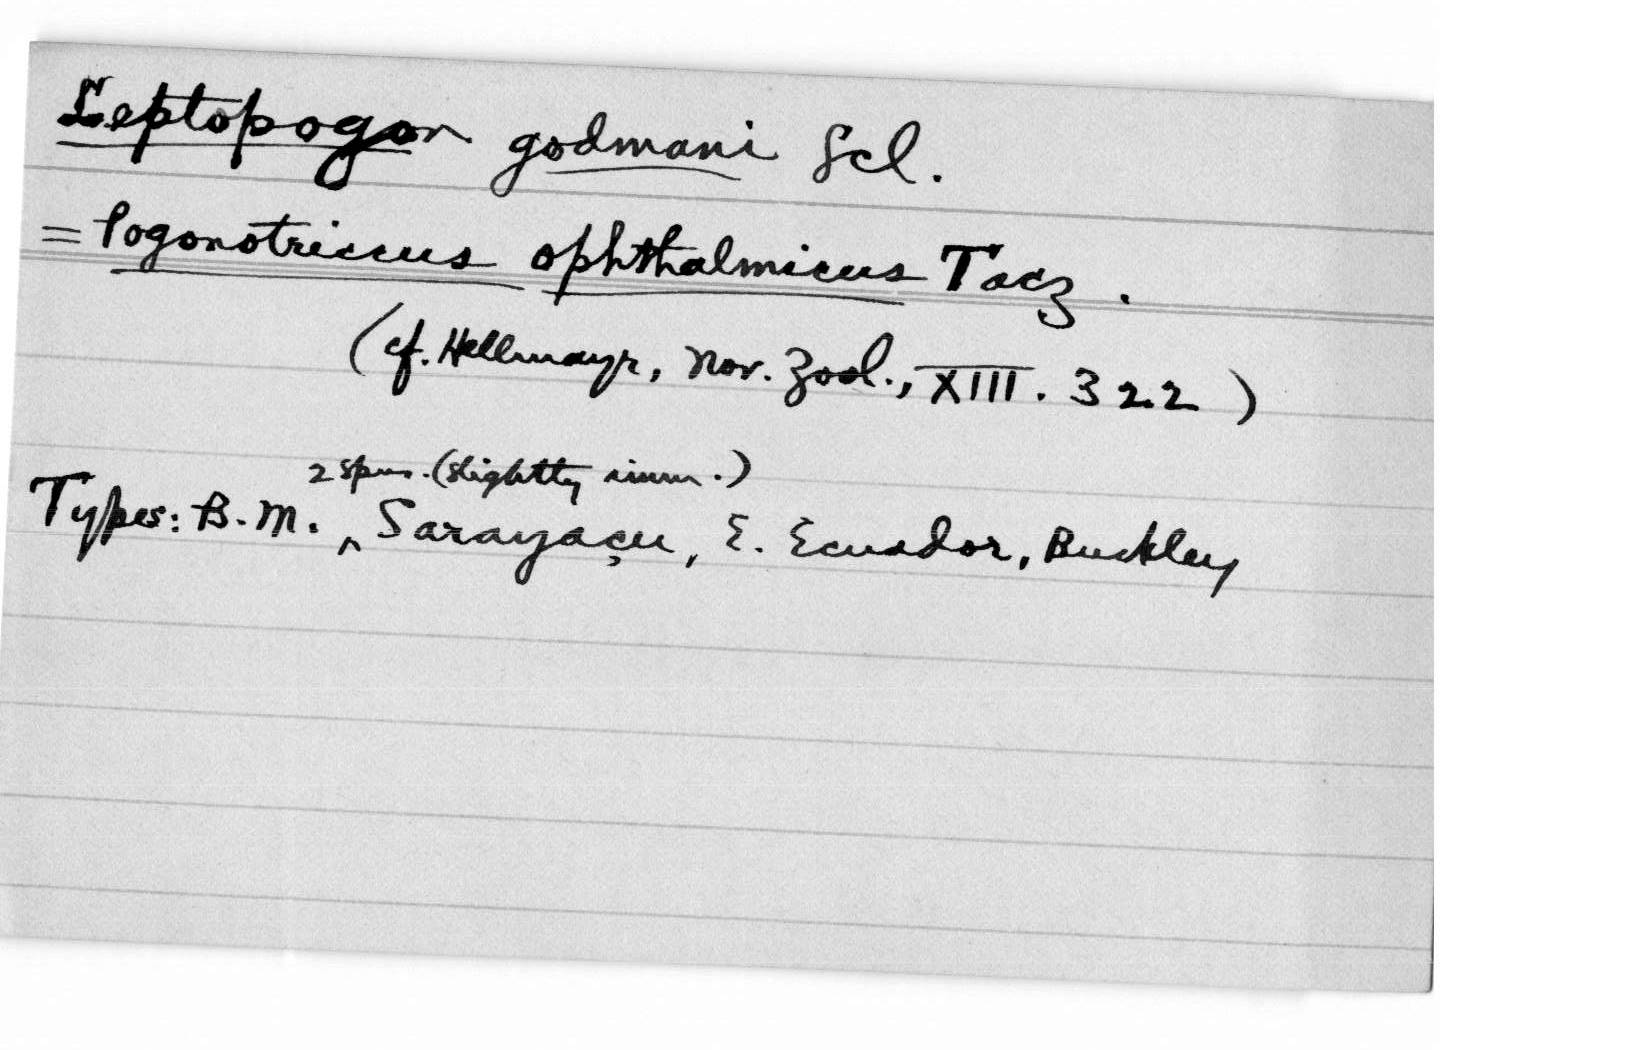 Leptopogon godmani Scl.
= Pogonotriccus ophthalmicus Tacz.
(cf. Hellmayr, Nov. Zool., XIII. 322)
2 spms. (slightly imm.)
Types: B.M. ^ Sarayaçu, E. Ecuador, Buckley